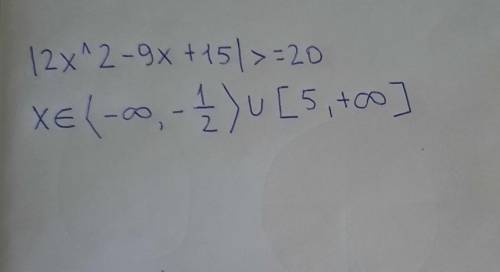 |2x^2-9x+15|>=20
x∈⟨-∞,-1/2⟩∪[5,+∞]